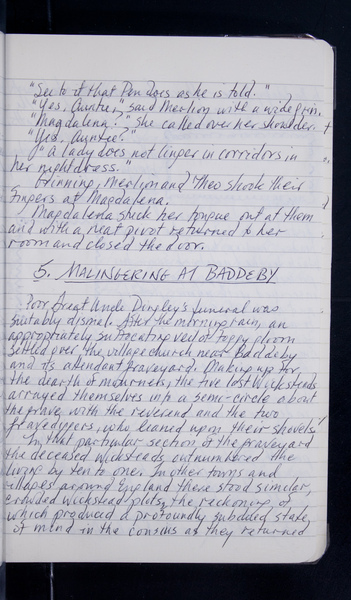 "See to it that Pen does as he is told."
"Yes, Auntie," said Merlion with a wide grin.
"Magdalena?" she called over her shoulder.
"Yes, Auntie?"
"A lady does not linger in corridors in
her nightdress."
Grinning, Merlion and Theo shook their
fingers at Magdalena.
Magdalena stuck her tongue out at them
and with a neat pivot returned to her
room and closed the door.
5. MALINGERING AT BADDEBY
Poor Great Uncle Dingley's funeral was
suitably dismal. After the morning rain, an
appropriately suffocating veil of foggy gloom
settled over the village church near Baddeby
and its attendant graveyard. Making up for
the dearth of mourners, the five last Wicksteads
arrayed themselves in a semi-circle about
the grave, with the reverend and the two
gravediggers, who leaned upon their shovels.
In that particular section of the graveyard
the deceased Wicksteads outnumbered the
living by ten to one. In other towns and
villages around England there stood similar,
crowded Wickstead plots, the reckoning of
which produced a profoundly subdued state
of mind in the cousins as they returned